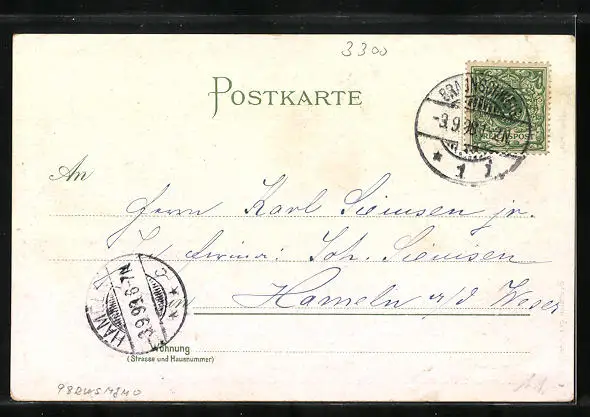 3300
POSTKARTE
BRAUNSCHWEIG
-3.9.98
* 1 1
REICHSPOST
An
Herrn Karl Siemsen jr.
Firma: Joh. Siemsen
Hameln a/d Weser
HAMELN
3.9.98 6-7N
Wohnung
(Strasse und Hausnummer)